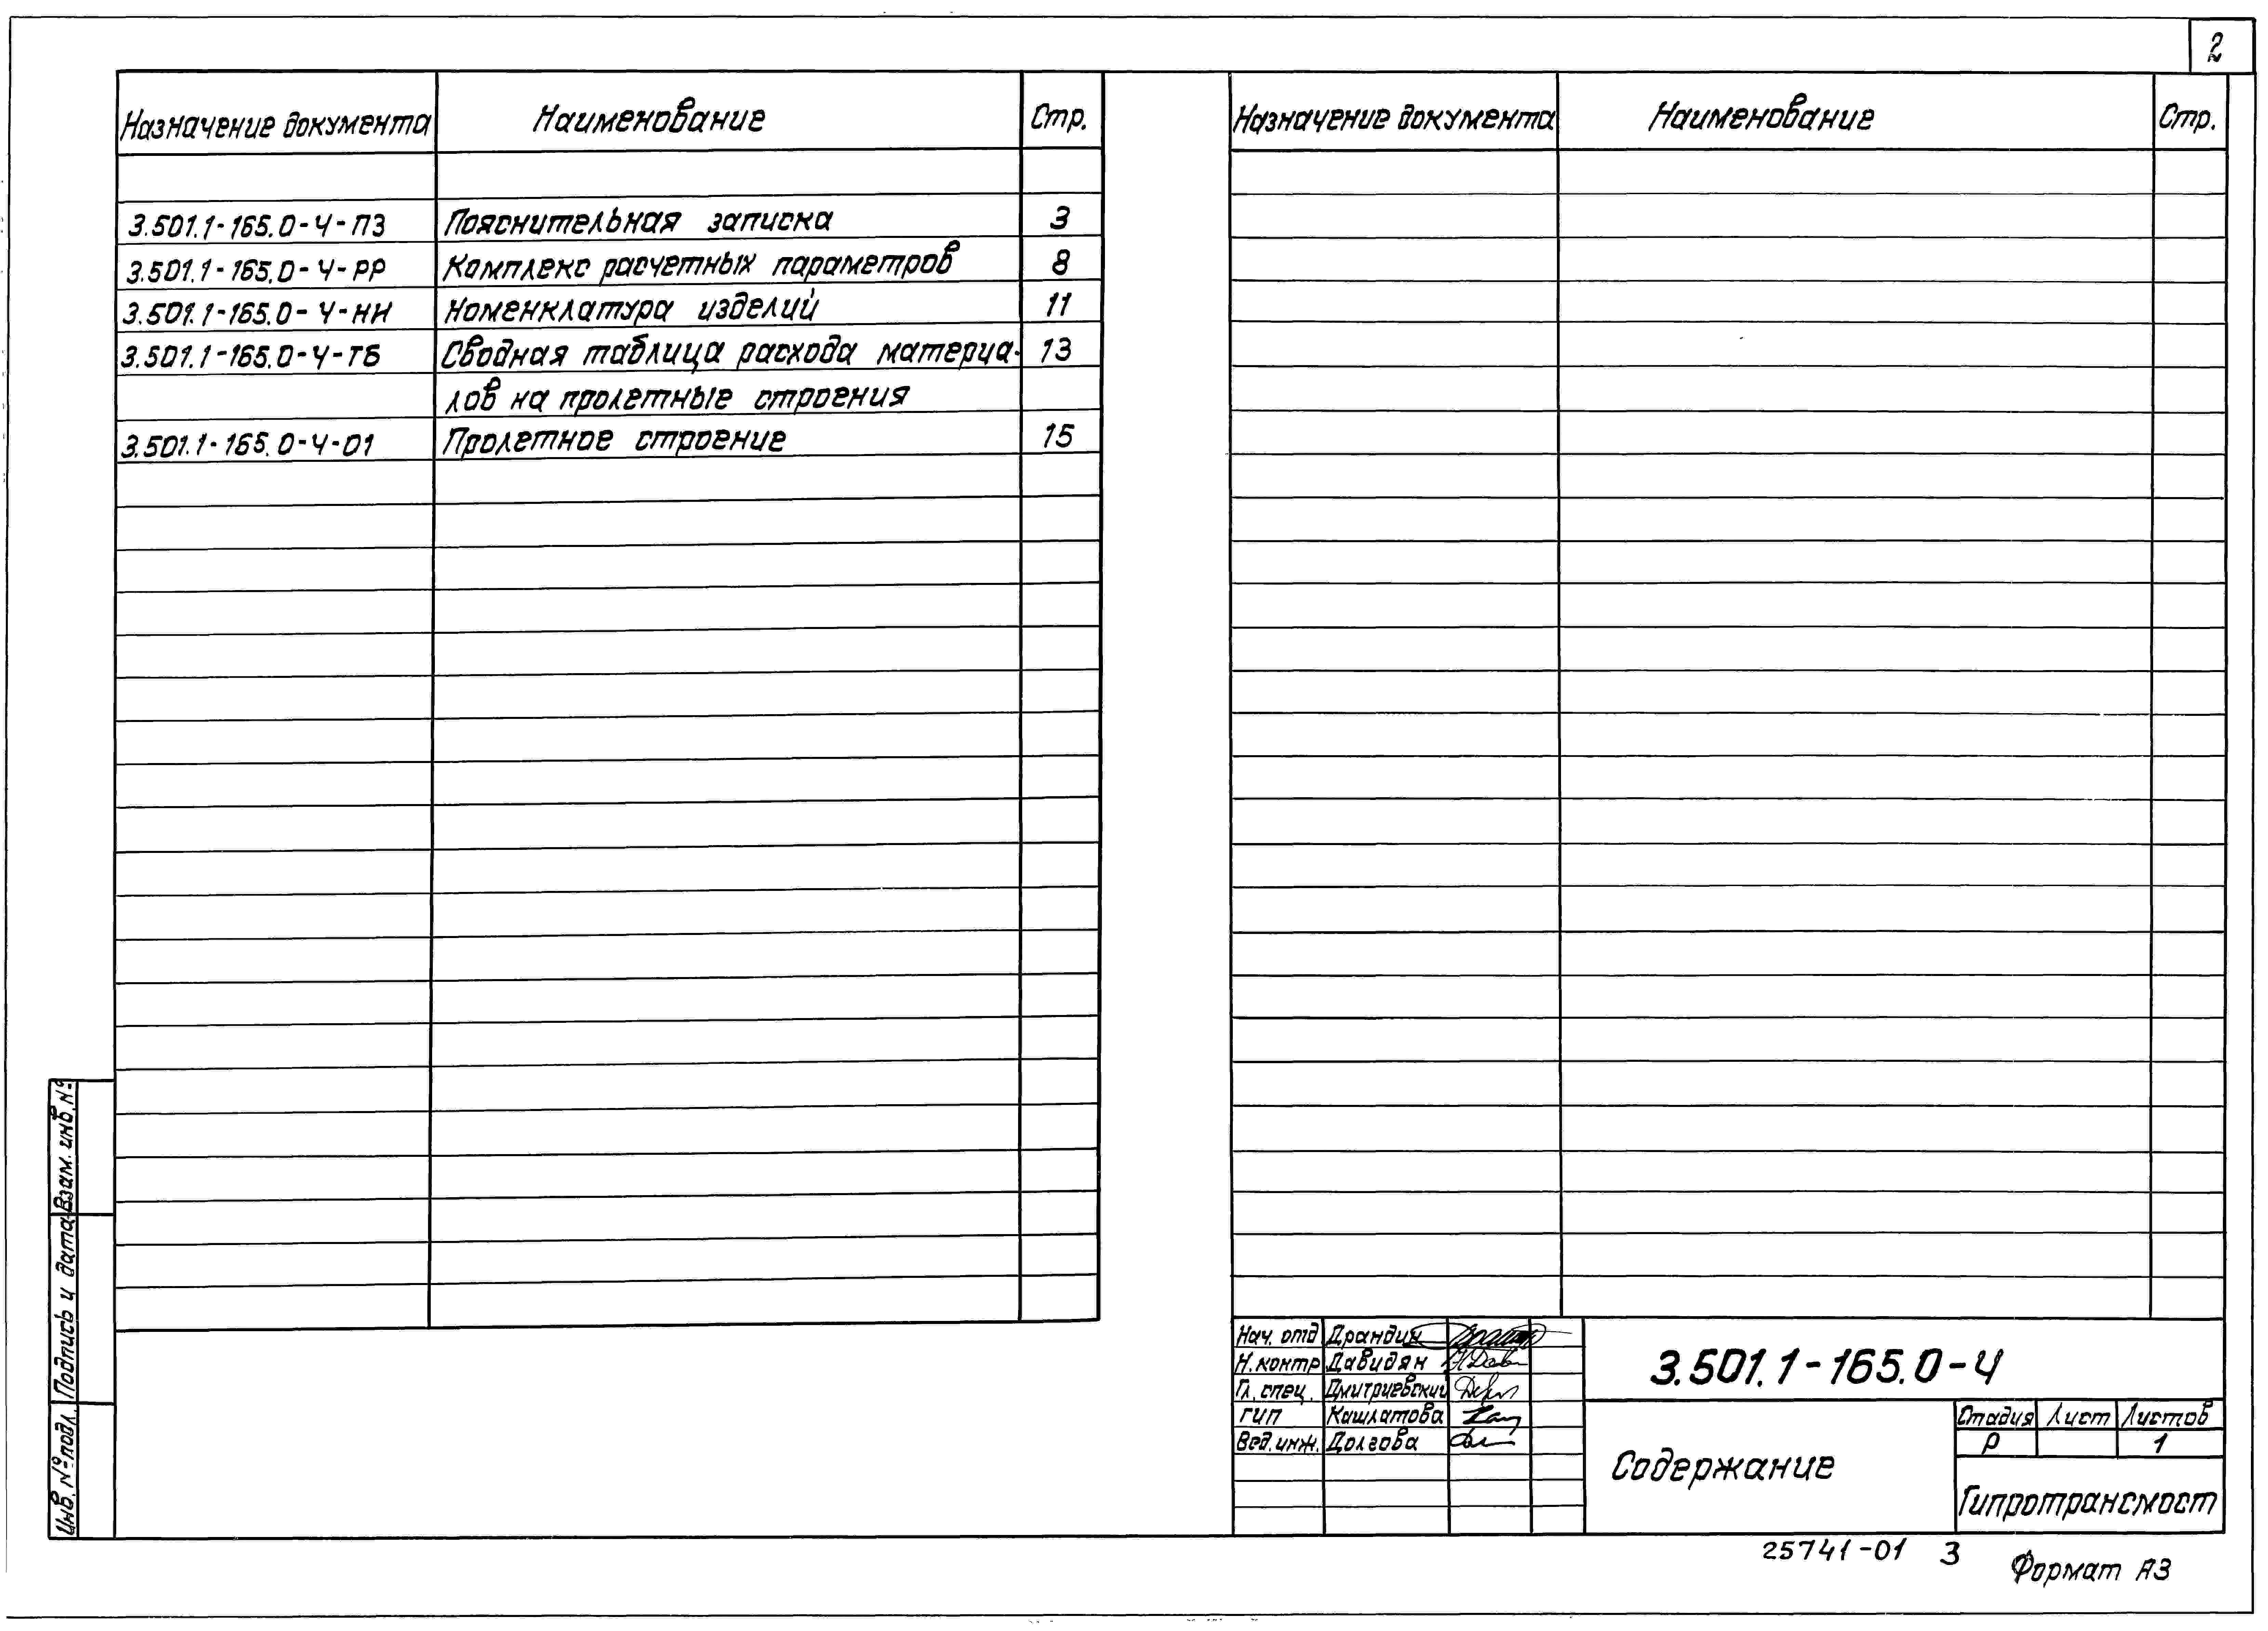 2
Назначение документа Наименование Стр.
3.501.1-165.0-4-ПЗ Пояснительная записка 3
3.501.1-165.0-4-РР Комплекс расчетных параметров 8
3.501.1-165.0-4-НИ Номенклатура изделий 11
3.501.1-165.0-4-ТБ Сводная таблица расхода материа- 13
лов на пролетные строения
3.501.1-165.0-4-01 Пролетное строение 15
Назначение документа Наименование Стр.
Взам. инв. №
Подпись и дата
Инв. № подл.
Нач. отд Драндин
Н.контр Давидян
Гл. спец. Дмитриевский
ГИП Кашлатова
Вед. инж. Долгова
3.501.1-165.0-4
Содержание
Стадия Лист Листов
Р 1
Гипротрансмост
25741-01 3
Формат А3